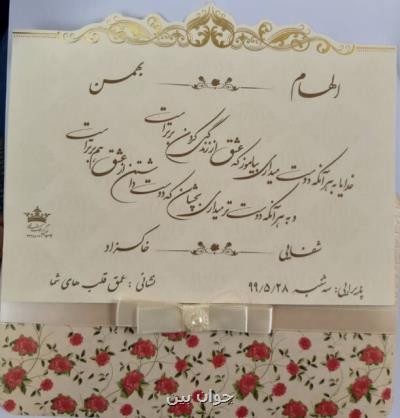 الهام بهمن
خدایا به هر آنکه دوست میداری بیاموز که عشق از زندگی کردن برتر است
و به هر آنکه دوست تر میداری بچشان که دوست داشتن از عشق هم برتر است
شفایی خاکزاد
پذیرایی: سه شنبه ۹۹/۵/۲۸ نشانی: عمق قلب های شما
جوان بین